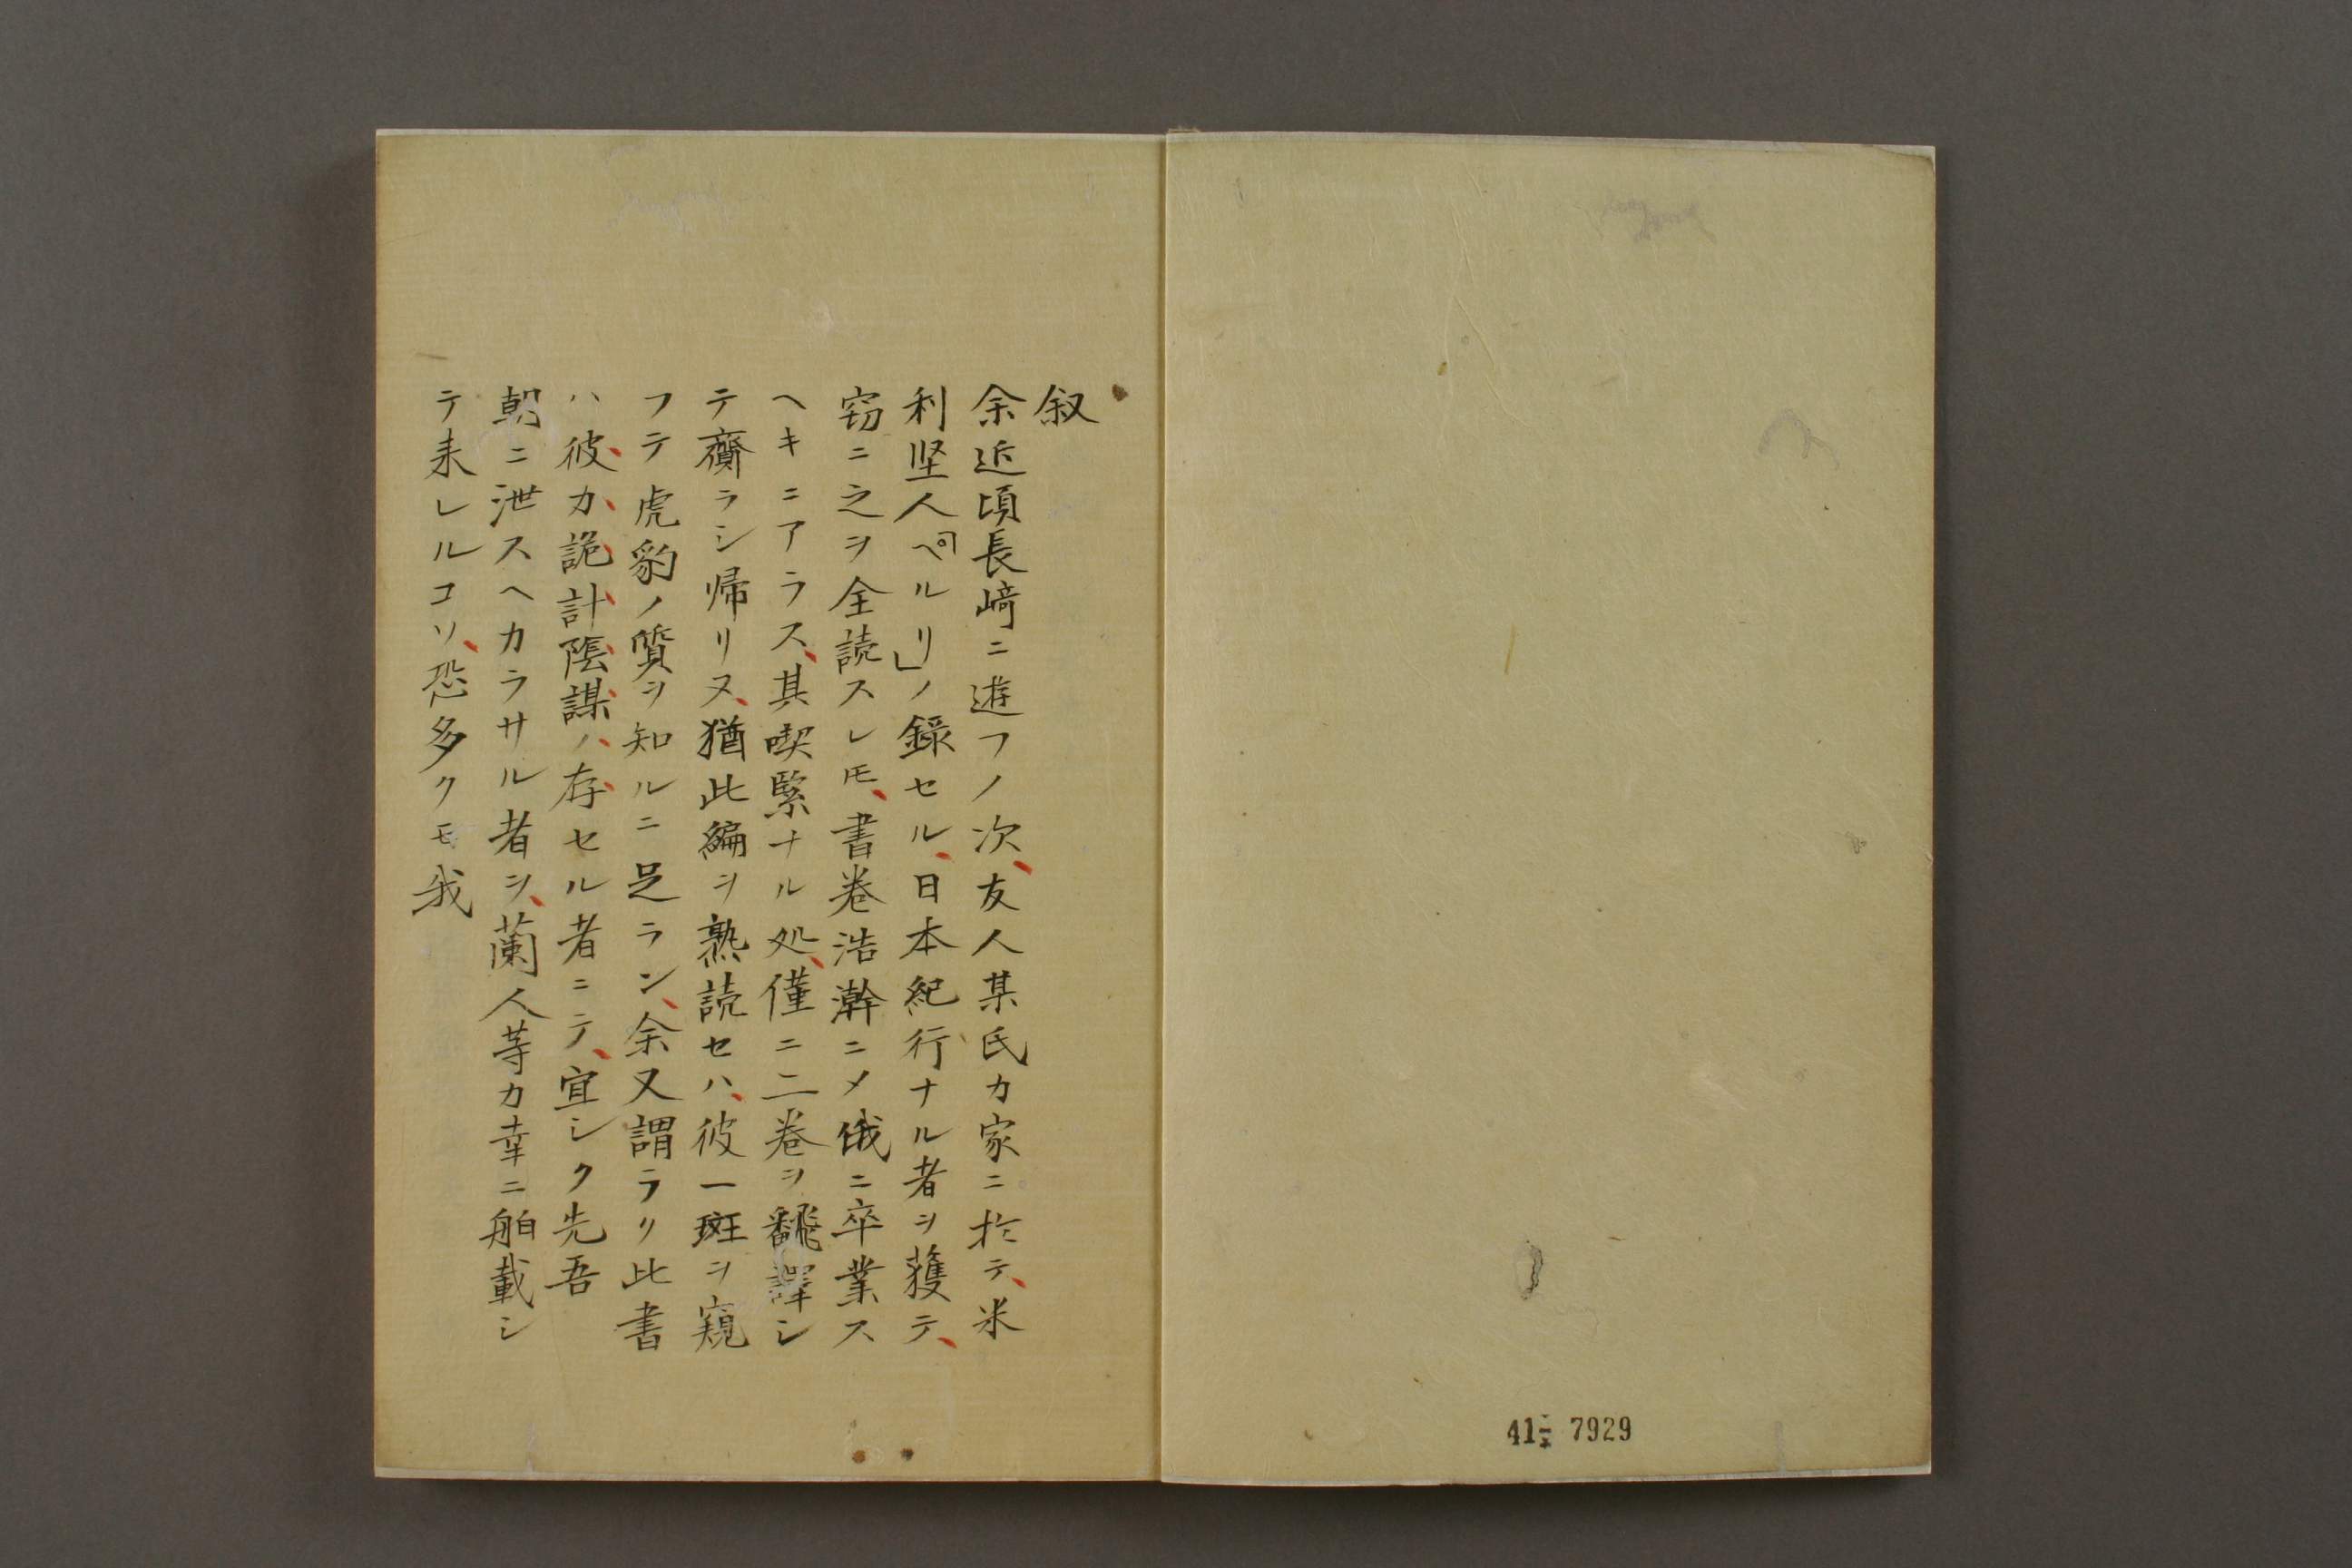 叙
余近頃長﨑ニ遊フノ次、友人某氏カ家ニ於テ、米
利堅人「ペルリ」ノ錄セル、日本紀行ナル者ヲ獲テ、
窃ニ之ヲ全読スレ𪜈、書巻浩澣ニメ俄ニ卒業ス
ヘキニアラス、其喫緊ナル処、僅ニ二巻ヲ飜譯シ
テ齎ラシ帰リヌ、猶此編ヲ熟読セハ、彼一斑ヲ窺
フテ虎豹ノ質ヲ知ルニ足ラン、余又謂ラリ此書
ハ彼カ詭計陰謀ノ存セル者ニテ、宜シク先吾
朝ニ泄スヘカラサル者ヲ、蘭人等カ幸ニ舶載シ
テ来レルコソ、恐多クモ我
41 7929